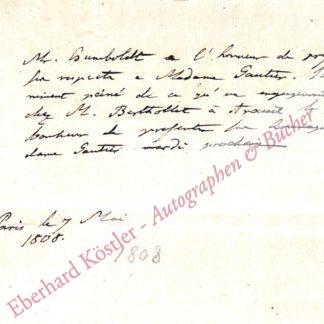 Mr. Humboldt a l'honneur de pr
ses respects à Madame Gautier.
niment peiné de ce qu'un engagement
chez M. Berthollet à Arcueil le
bonheur de présenter ses hommag
dame Gautier mardi prochain
Paris le 7 Mai
1808.
1808
Eberhard Köstler - Autographen & Bücher